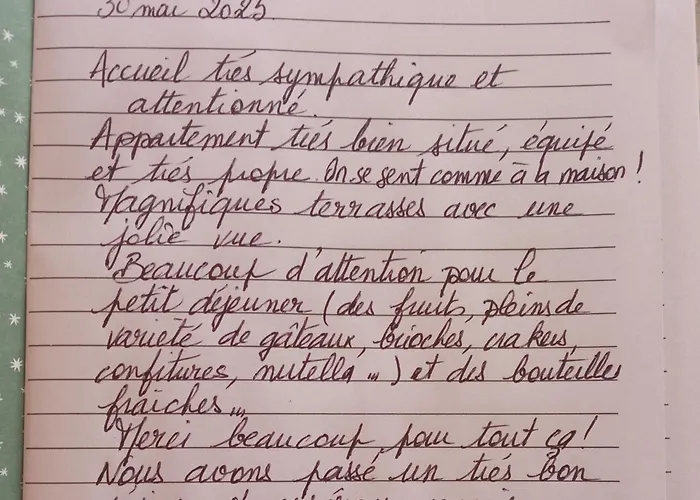 30 mai 2025.
Accueil très sympathique et
attentionné.
Appartement très bien situé, équipé
et très propre. On se sent comme à la maison !
Magnifiques terrasses avec une
jolie vue.
Beaucoup d'attention pour le
petit déjeuner (des fruits, pleins de
varieté de gâteaux, brioches, crakers,
confitures, nutella ...) et des bouteilles
fraîches...
Merci beaucoup pour tout ça !
Nous avons passé un très bon